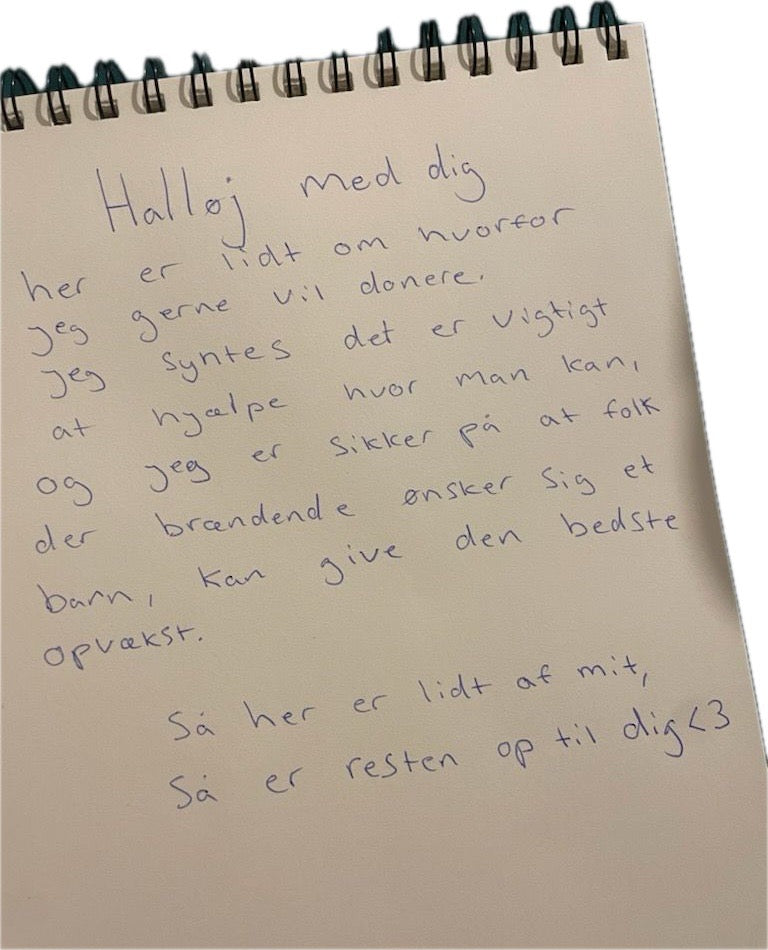 Halløj med dig
her er lidt om hvorfor
jeg gerne vil donere.
jeg syntes det er vigtigt
at hjælpe hvor man kan,
og jeg er sikker på at folk
der brændende ønsker sig et
barn, kan give den bedste
opvækst.
Så her er lidt af mit,
Så er resten op til dig <3